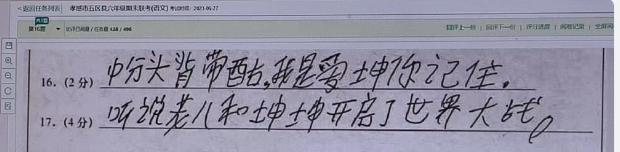 <返回任务列表 孝感市五区县六年级期末联考(语文) 考试时间: 2023-06-27
第16题 128 / 496
回评上一份 | 回评下一份 | 评分进度 | 阅卷记录 |
16. (2分) 中分头背带酷,我是爱坤你记住.
17. (4分) 听说老八和坤坤开启了世界大战。